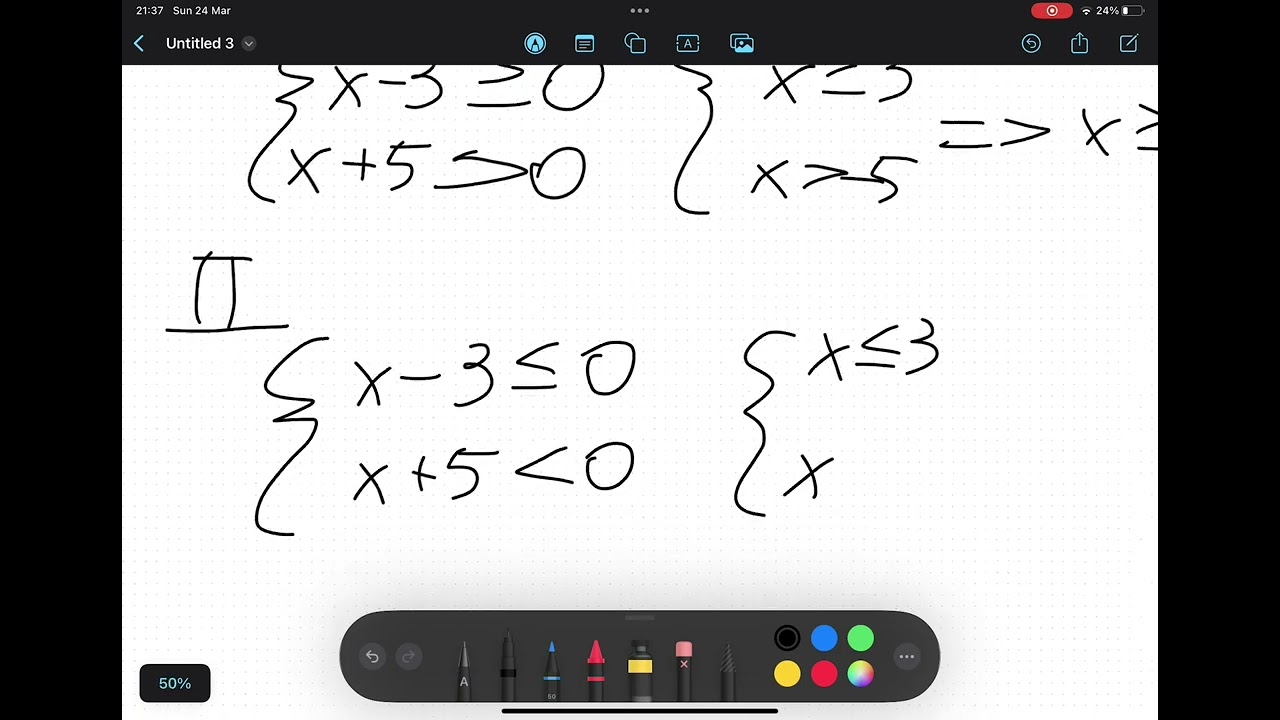 21:37 Sun 24 Mar
24%
Untitled 3
A
{ x-3≥0
x+5>0
{ x≥3
x>-5
=> x≥
II
{ x-3≤0
x+5<0
{ x≤3
x
A
50
50%